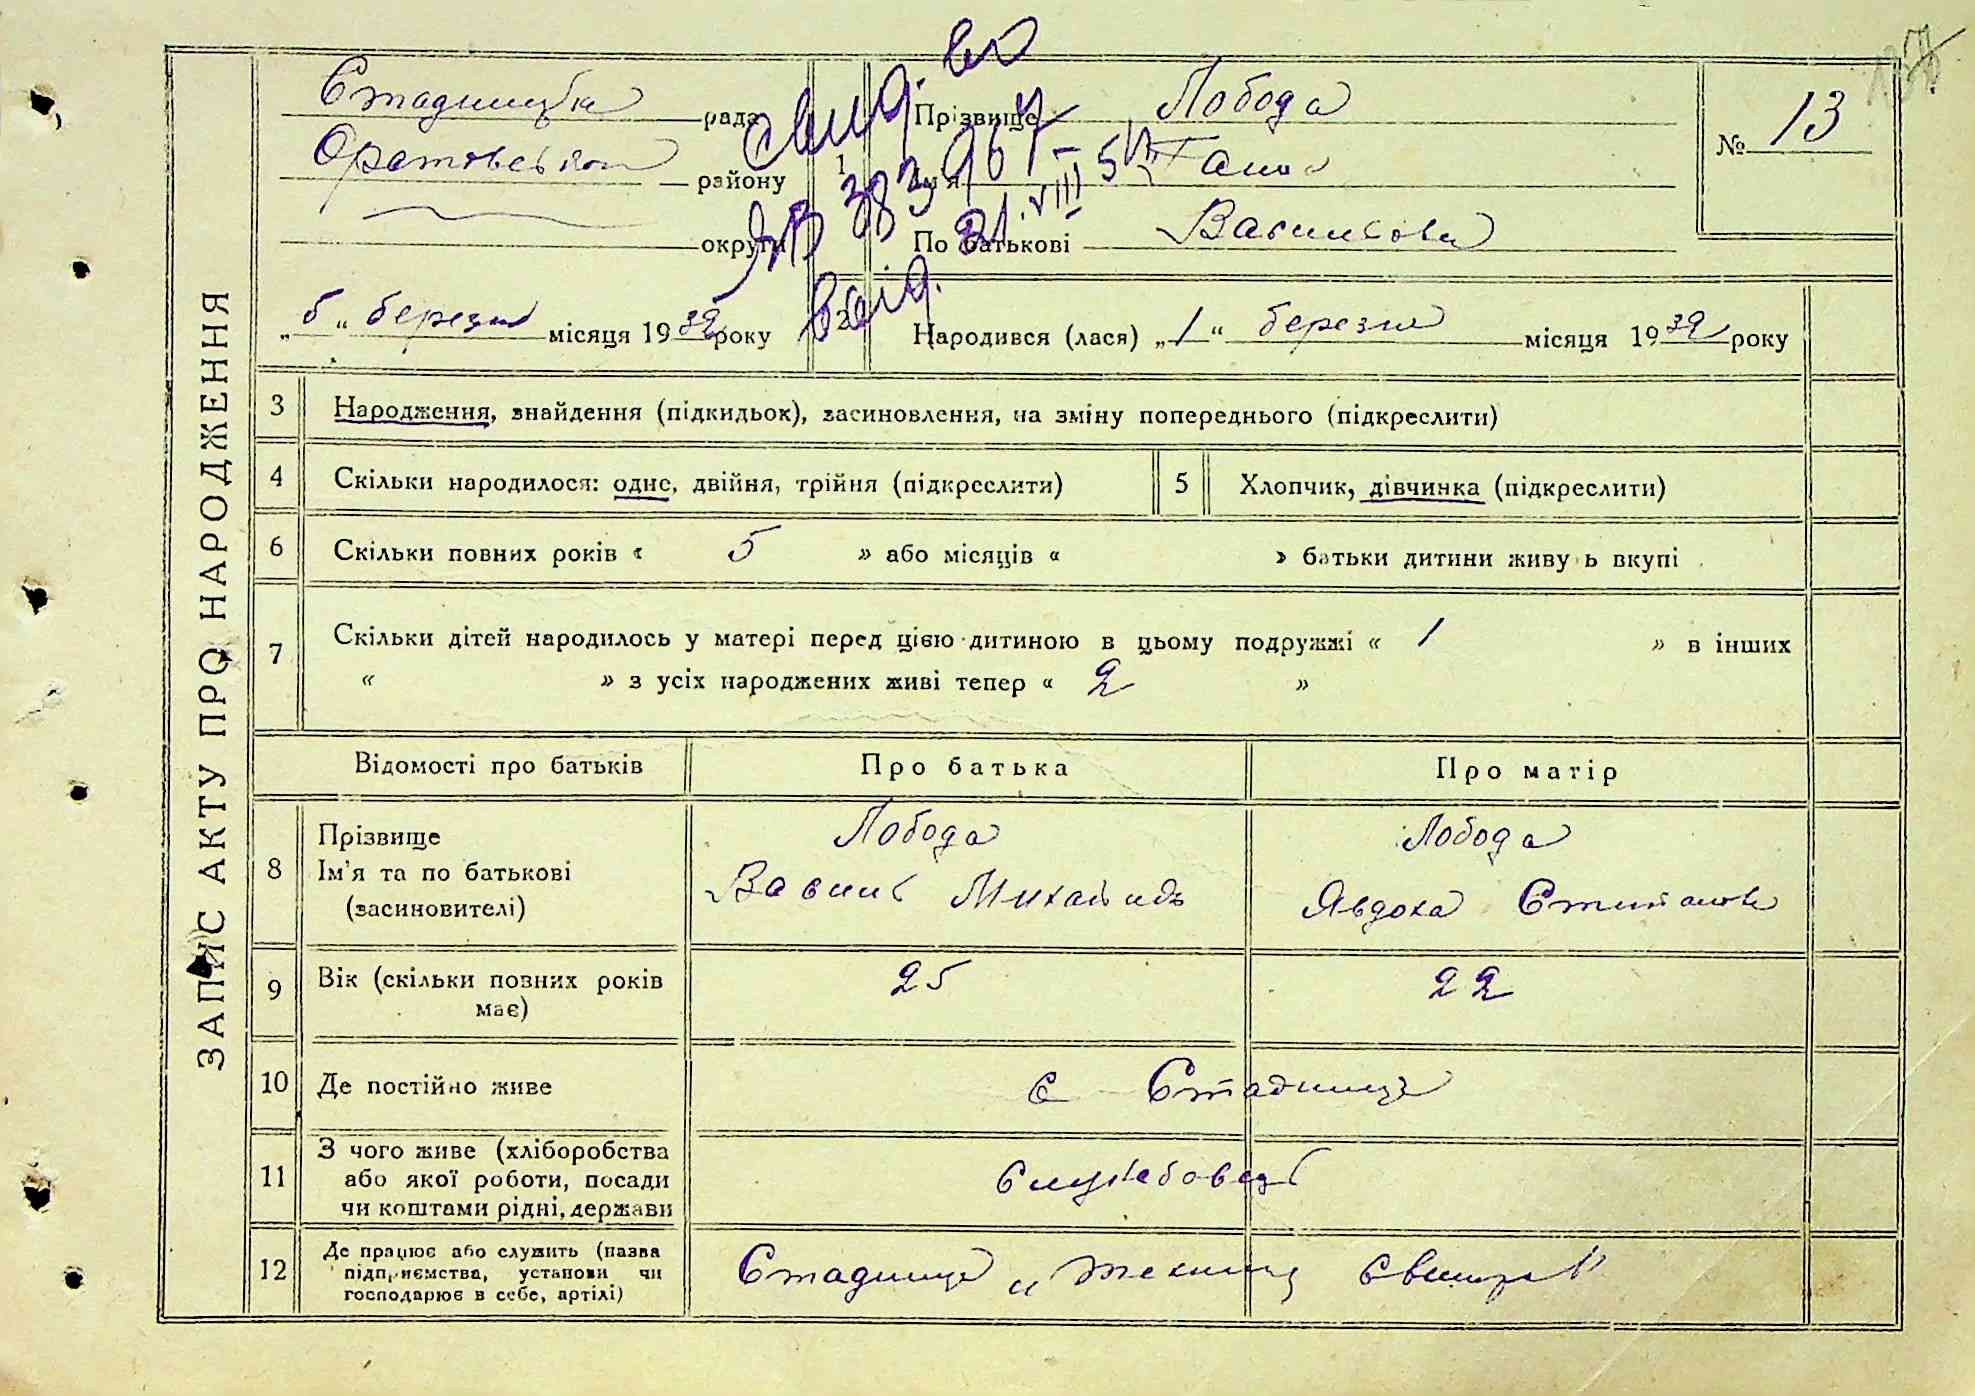 ЗАПИС АКТУ ПРО НАРОДЖЕННЯ
Стадницька рада
Оратовського району
округи
„5“ березня місяця 1932 року
свид. во
ЯВ 383967
31.VIII-51
вид.
1 Прізвище Лобода
Ім'я Ганна
По батькові Васильовна
№ 13
2 Народився (лася) „1“ березня місяця 1932 року
3 Народження, знайдення (підкидьок), засиновлення, на зміну попереднього (підкреслити)
4 Скільки народилося: одне, двійня, трійня (підкреслити)
5 Хлопчик, дівчинка (підкреслити)
6 Скільки повних років « 5 » або місяців « » батьки дитини живуть вкупі
7 Скільки дітей народилось у матері перед цією дитиною в цьому подружжі « 1 » в інших
« » з усіх народжених живі тепер « 2 »
Відомості про батьків Про батька Про матір
8 Прізвище Лобода Лобода
Ім'я та по батькові Василь Михайл Явдоха Степановн
(засиновителі)
9 Вік (скільки повних років 25 22
має)
10 Де постійно живе с Стадниця
11 З чого живе (хліборобства
або якої роботи, посади службовець
чи коштами рідні, держави
12 Де працює або служить (назва
підприємства, установи чи Стадниця
господарює в себе, артілі)